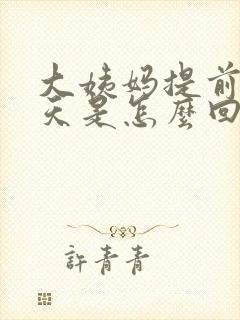 大姨妈提前
天是怎麼回
許青青